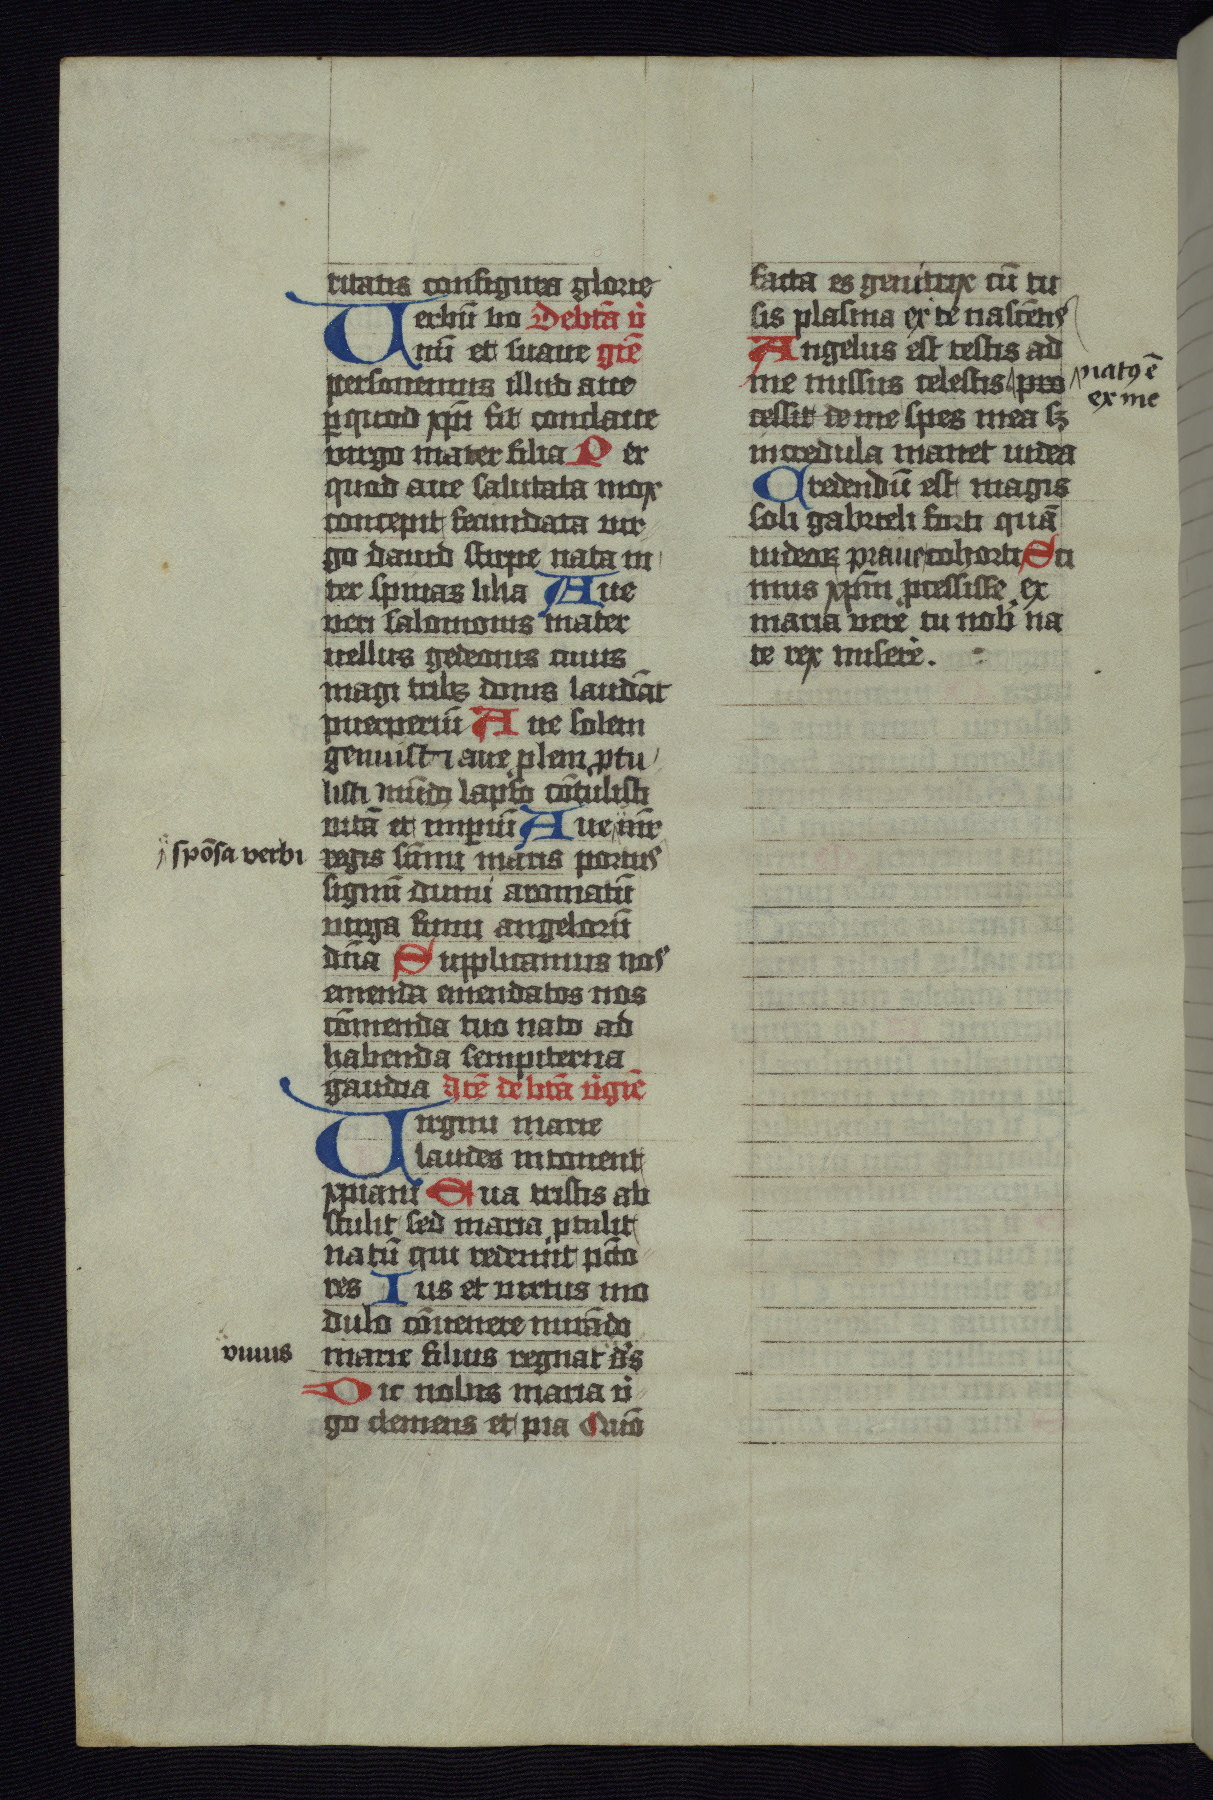 ritatis configura glorie
Uerbū bo De btā v̄
nū et suaue gīe
personemus illud aue
ꝑ quod xp̄i fit conclaue
virgo mater filia Per
quod aue salutata mox
concepit fecundata vir
go dauid stirpe nata in
ter spinas lilia Aue
veri salomonis mater
vellus gedeonis cuius
magi tribꝫ donis laudāt
puerperiū Aue solem
genuisti aue plem ꝓtu
listi mūdo lapso cōtulisti
vitā et imꝑiū Aue mr̄
spōsa verbi
regis sūmi maris portus
signū dumi aromatū
virga fumi angelorū
dn̄a Supplicamus nos
emenda emendatos nos
cōmenda tuo nato ad
habenda sempiterna
gaudia Itē de btā v̄gīe
Uirgini marie
laudes intonent
xp̄iani Eua tristis ab
stulit sed maria ꝓtulit
natū qui redemit pctō
res Ius et virtus mo
dulo cōuenere mirādo
viuus
marie filius regnat d̄s
Dic nobis maria v̄
go clemens et pia Quō
facta es genitrix cū tu
sis plasma ex te nascēns
Angelus est testis ad
me missus celestis pro
natꝰ ē
ex me
cessit de me spes mea sꝫ
incredula manet iudea
Credendū est magis
soli gabrieli forti quā
iudeoꝝ praue cohorti Sci
mus xp̄m ꝓcessisse ex
maria vere tu nob̄ na
te rex miserē.